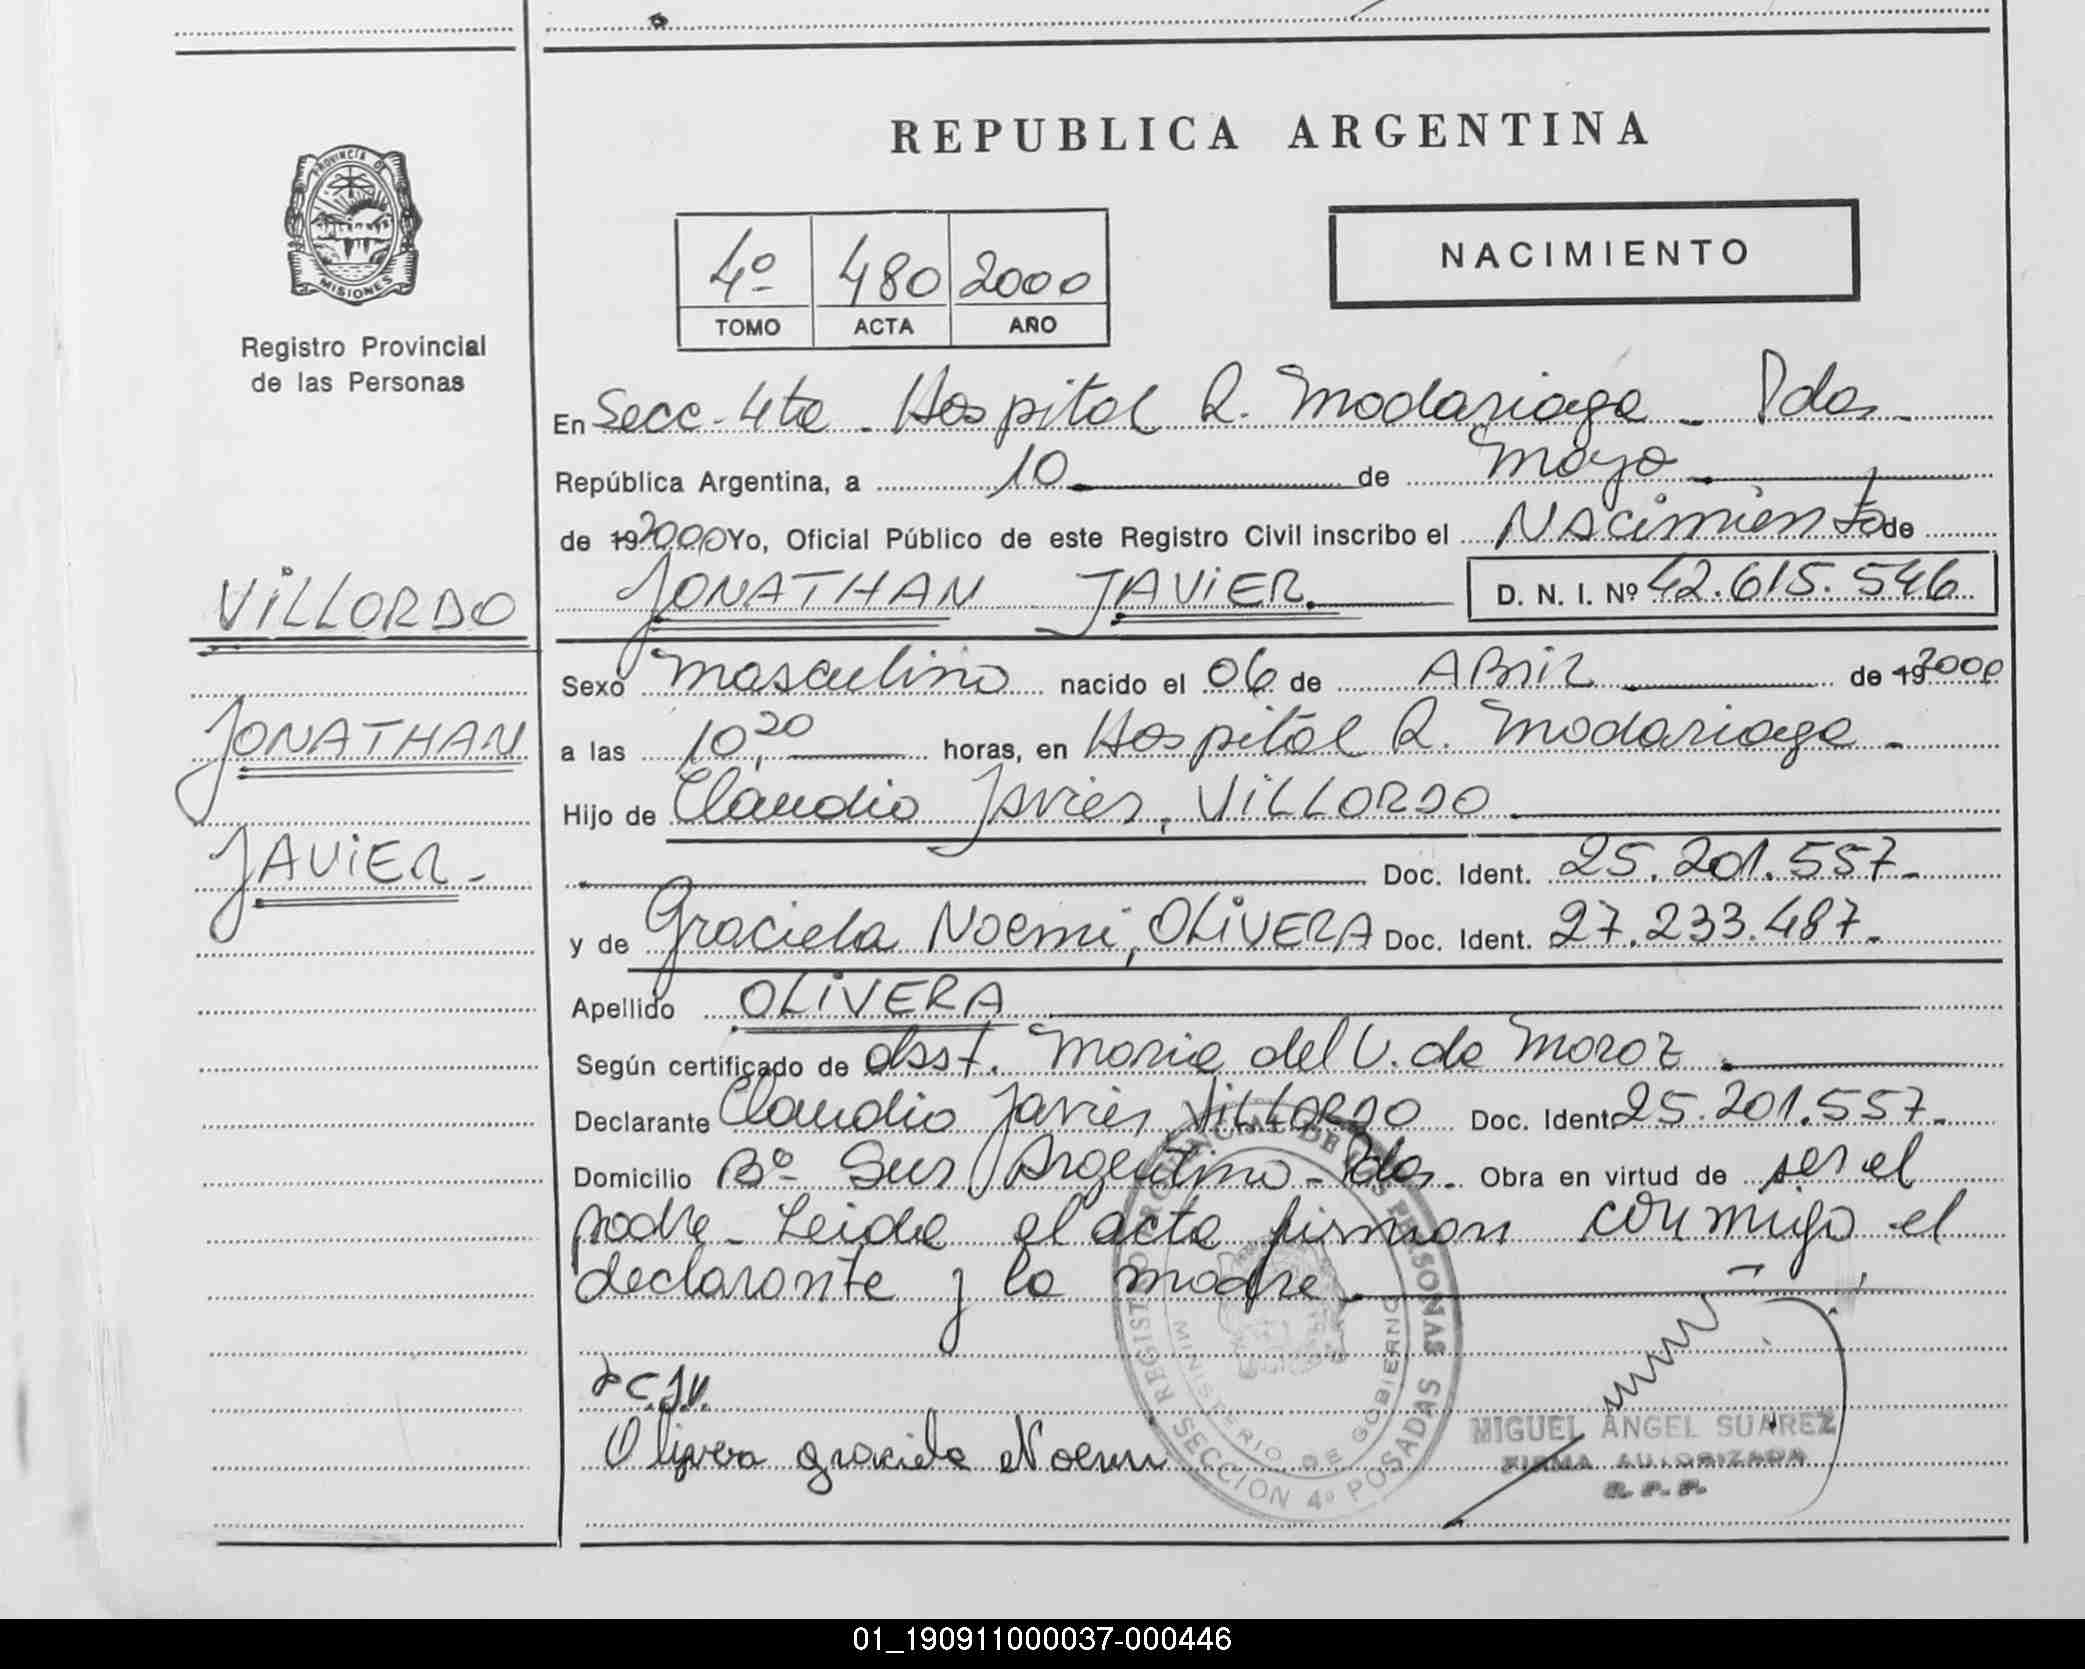 REPUBLICA ARGENTINA
PROVINCIA DE
MISIONES
Registro Provincial
de las Personas
4º 480 2000
TOMO ACTA AÑO
NACIMIENTO
En Secc. 4ta. Hospital R. Madariaga - Pdas -
República Argentina, a 10 de Mayo
de 192000 Yo, Oficial Público de este Registro Civil inscribo el Nacimiento de
JONATHAN JAVIER D. N. I. Nº 42.615.546
VILLORDO
JONATHAN
JAVIER -
Sexo Masculino nacido el 06 de Abril de 192000
a las 10,20 horas, en Hospital R. Madariaga -
Hijo de Claudio Javier, VILLORDO
Doc. Ident. 25.201.557 -
y de Graciela Noemi, OLIVERA Doc. Ident. 27.233.487 -
Apellido OLIVERA
Según certificado de obst. Maria del C. de Moroz
Declarante Claudio Javier VILLORDO Doc. Ident. 25.201.557 -
Domicilio Bº Sur Argentino - Pdas. Obra en virtud de ser el
padre - Leida el acta firman conmigo el
declarante y la madre
Olivera graciela Noemi
REGISTRO PROVINCIAL DE LAS PERSONAS
MINISTERIO DE GOBIERNO
SECCION 4º POSADAS
MIGUEL ANGEL SUAREZ
FIRMA AUTORIZADA
R. P. P.
01_190911000037-000446